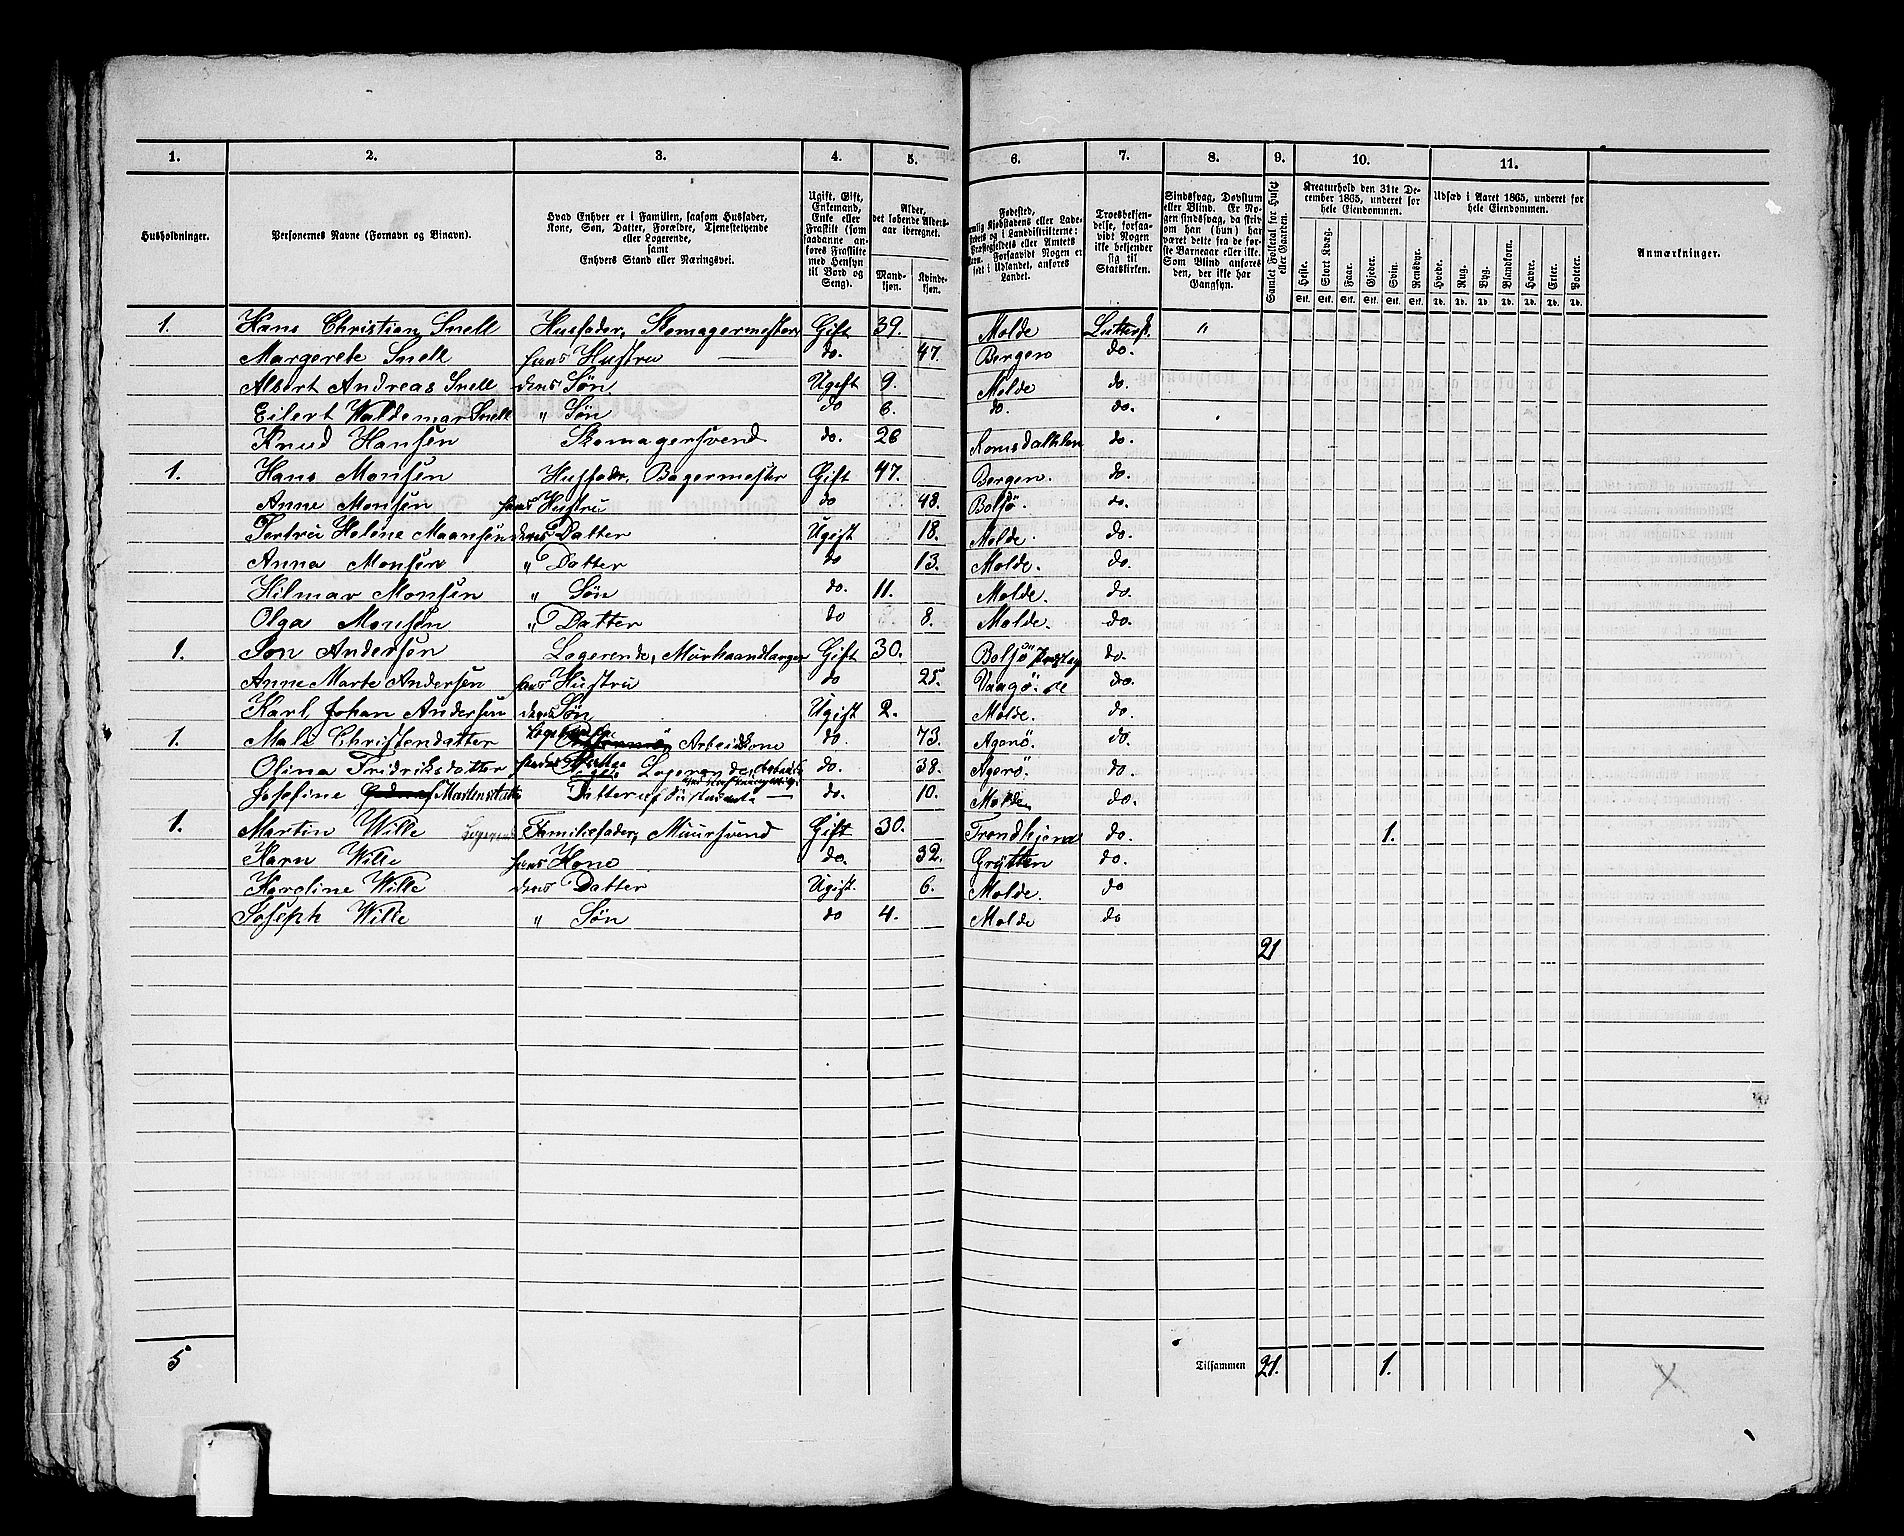 1. 2. 3. 4. 5. 6. 7. 8. 9. 10. 11.
Husholdninger.
Personernes Navne (Fornavn og Binavn).
Hvad Enhver er i Familien, saasom Husfader,
Kone, Søn, Datter, Forældre, Tjenestetyende
eller Logerende,
samt
Enhvers Stand eller Næringsvei.
Ugift, Gift,
Enkemand,
Enke eller
Fraskilt (som
saadanne an-
føres Fraskilte
med Hensyn
til Bord og
Seng).
Alder,
det løbende Alders-
aar iberegnet.
Mand-
kjøn.
Kvinde-
kjøn.
Fødested,
Kjøbstadens eller Lade-
i Landdistrikterne:
eller Amtets
Forsaavidt Nogen er
født i Udlandet, anføres
Landet.
Troesbekjen-
delse, forsaa-
vidt Nogen
ikke bekjender
sig til
Statskirken.
Sindssvag, Døvstum
eller Blind. Er No-
gen sindssvag, da skriv
om han (hun) har
været dette fra de før-
ste Barneaar eller ikke.
Som Blind anføres
den, der ikke har
Gangsyn.
Samlet Folketal for Huset
eller Gaarden.
Kreaturhold den 31te De-
cember 1865, underet for
hele Eiendommen.
Heste. Stort Kvæg. Faar. Gjeder. Svin. Rensdyr.
Stk. Stk. Stk. Stk. Stk. Stk.
Udsæd i Aaret 1865, underet for
hele Eiendommen.
Hvede. Rug. Byg. Blandkorn. Havre. Erter. Poteter.
Td. Td. Td. Td. Td. Td. Td.
Anmærkninger.
1. Hans Christian Snell Husfader, Skomagermester Gift 39. Molde Luthersk "
Margerete Snell hans Hustru do. 47. Bergen do.
Albert Andreas Snell deres Søn Ugift 9. Molde do.
Eilert Waldemar Snell " Søn do 6. do. do.
Knud Hansen Skomagersvend do. 26 do.
1. Hans Monsen Husfader, Bagermester Gift 47. Bergen. do.
Anne Monsen hans Hustru do 48. Bolsø. do.
Helene Maansen deres Datter Ugift 18. Molde. do.
Anna Monsen " Datter do 13. Molde. do.
Hilmar Monsen " Søn do. 11. Molde. do.
Olga Monsen " Datter do 8. Molde. do.
1. Jon Andersen Logerende, Murhaandlanger Gift 30. Bolsø do.
Anne Marte Andersen hans Hustru do 25. Vaagø do.
Karl Johan Andersen deres Søn Ugift 2. Molde. do.
1. Mali Christensdatter Arbeidskone do. 73. Agerø. do.
Olina Fridriksdatter Logerende, do. 38. Agerø. do.
Josefine Martensdatter Datter af do. 10. Molde do.
1. Martin Wille Logerende Familiefader, Muursvend Gift 30. Trondhjem do. 1.
Karn Wille hans Kone do. 32. Grytten do.
Karoline Wille deres Datter Ugift. 6. Molde. do
Joseph Wille " Søn do 4. Molde do
21
5 Tilsammen 21. 1.